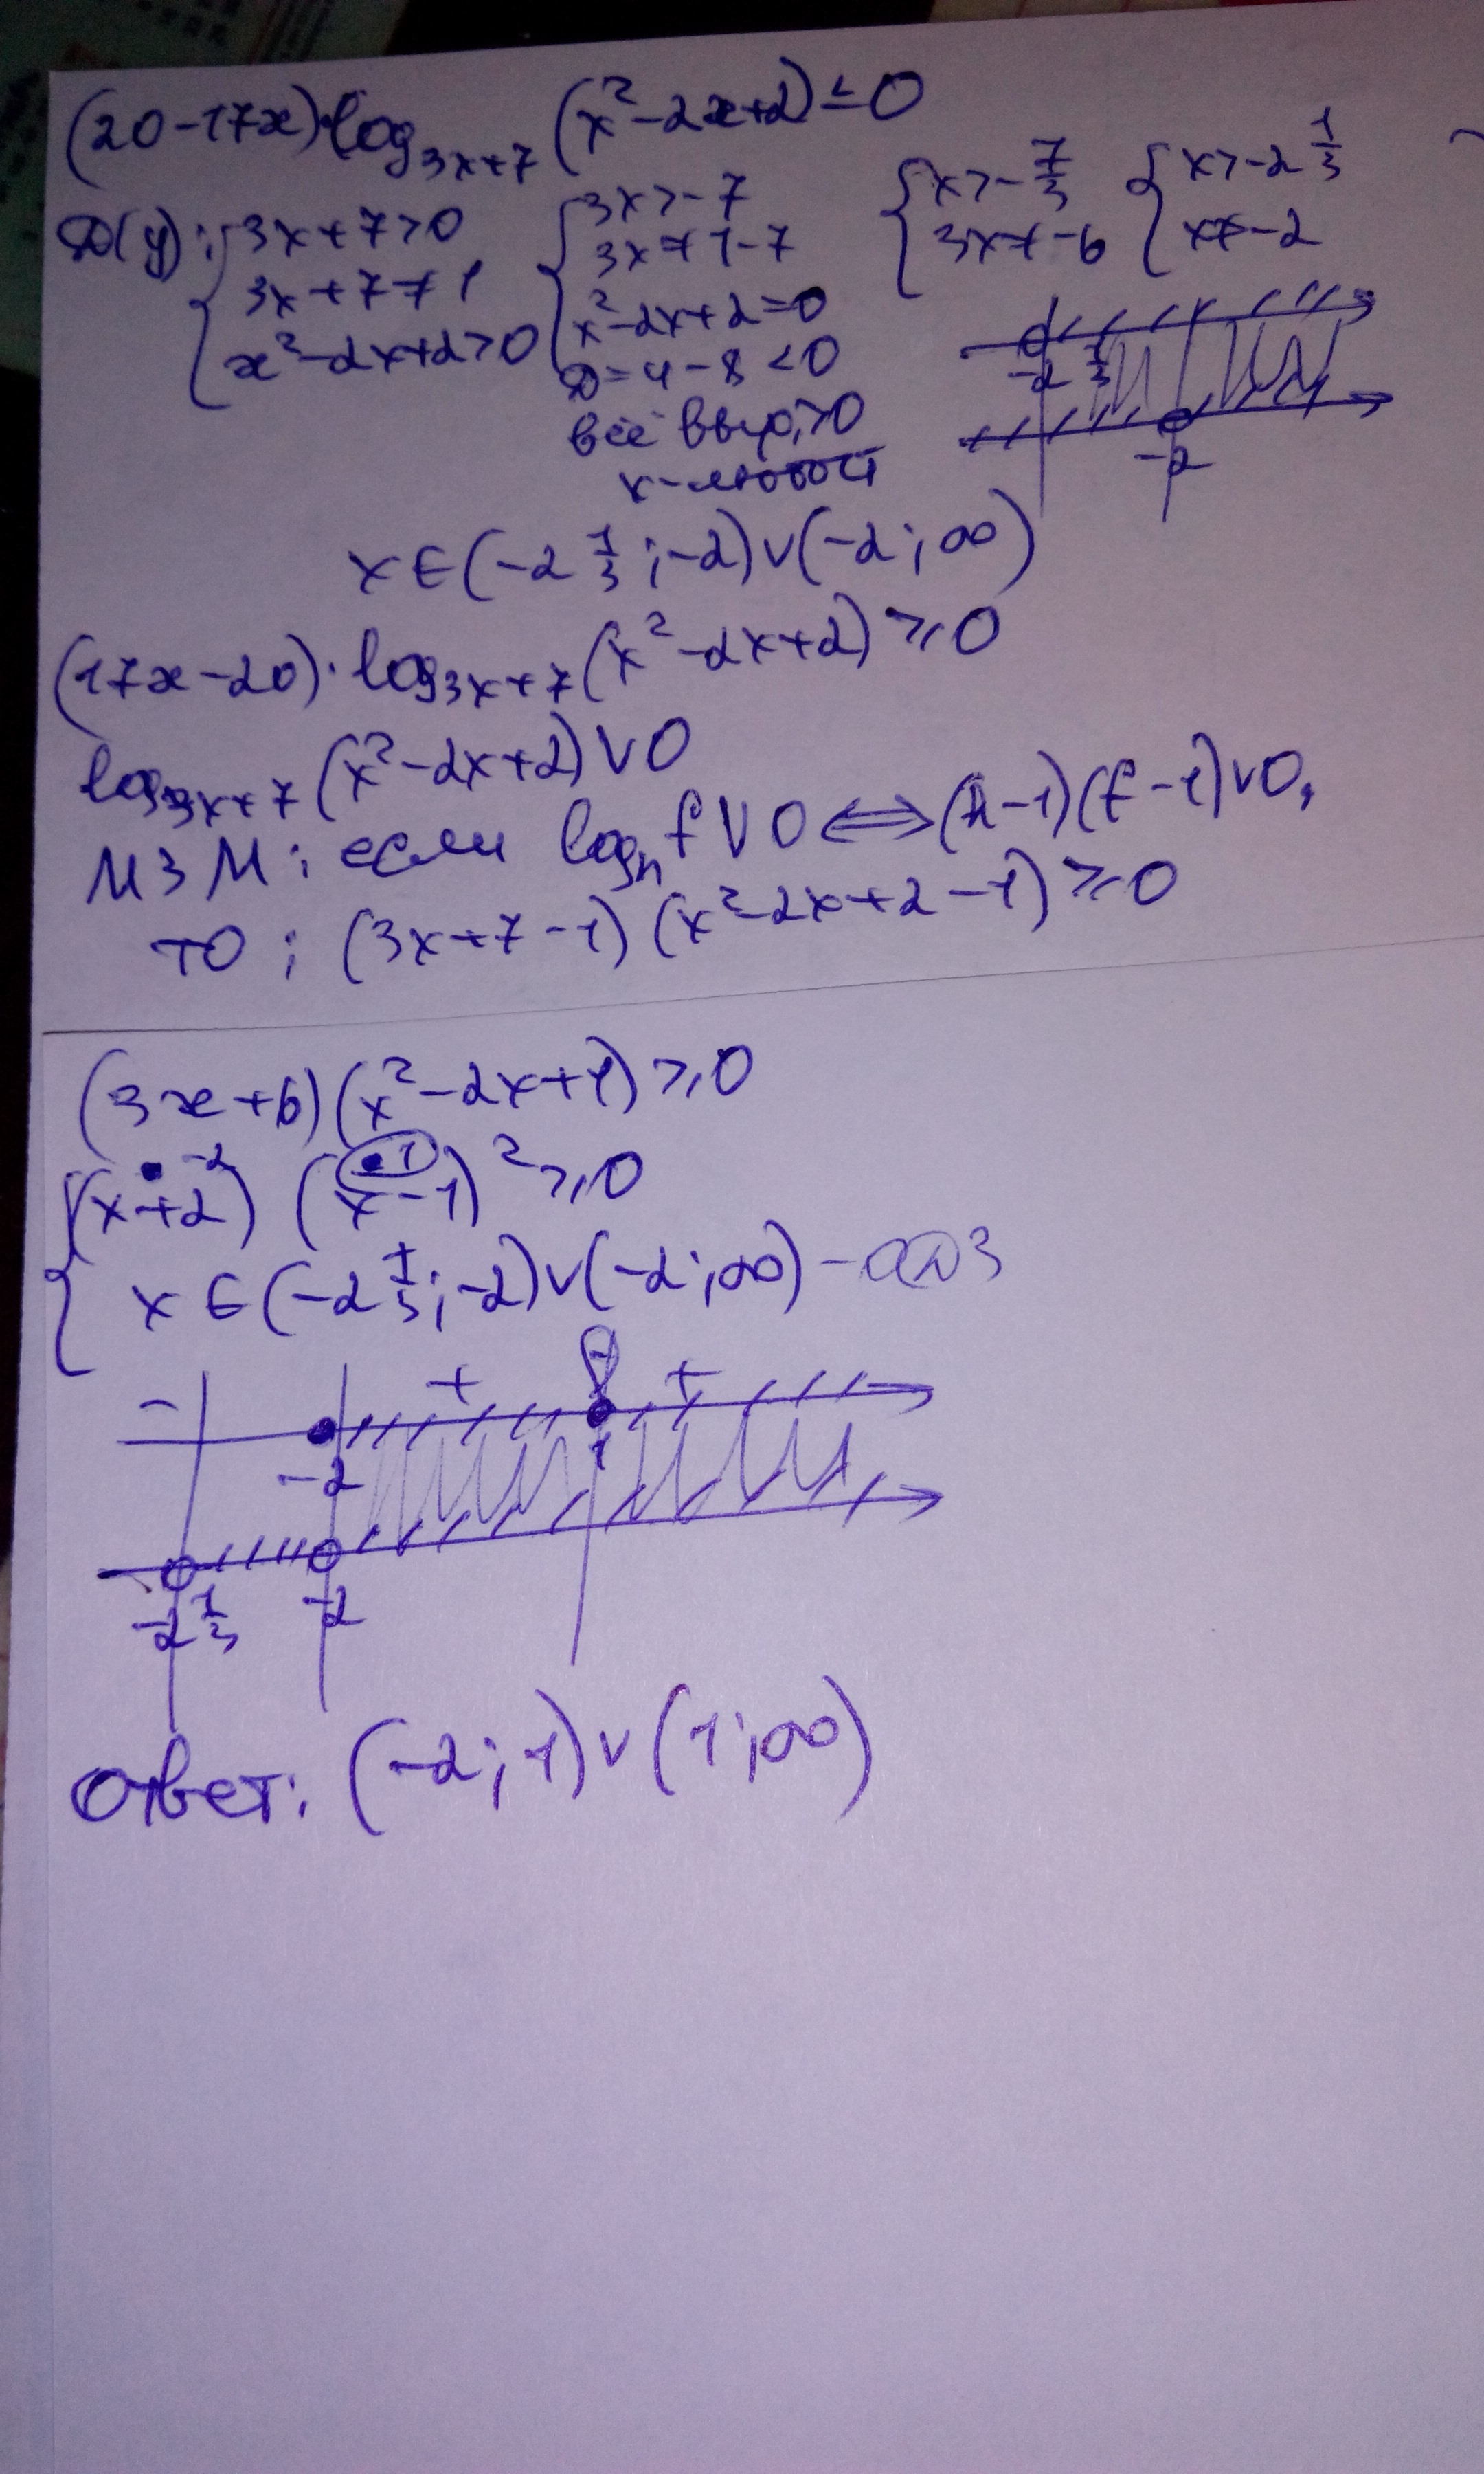 (20-17x)·log₃ₓ₊₇ (x²-2x+2)≤0
D(y): { 3x+7>0
3x+7≠1
x²-2x+2>0
{ 3x>-7
3x≠1-7
x²-2x+2=0
D=4-8<0
всё выр.>0
x-любой
{ x>-7/3
3x≠-6
{ x>-2 1/3
x≠-2
-2 1/3
-2
x∈(-2 1/3;-2)∨(-2;∞)
(17x-20)·log₃ₓ₊₇(x²-2x+2)≥0
log₃ₓ₊₇(x²-2x+2)∨0
МЗМ: если logₕ f∨0⟺(h-1)(f-1)∨0,
то: (3x+7-1)(x²-2x+2-1)≥0
(3x+6)(x²-2x+1)≥0
-2 1
{ (x+2) (x-1)²≥0
x∈(-2 1/3;-2)∨(-2;∞)-ОДЗ
- + +
-2 1
-2 1/3 -2
Ответ: (-2;1)∨(1;∞)